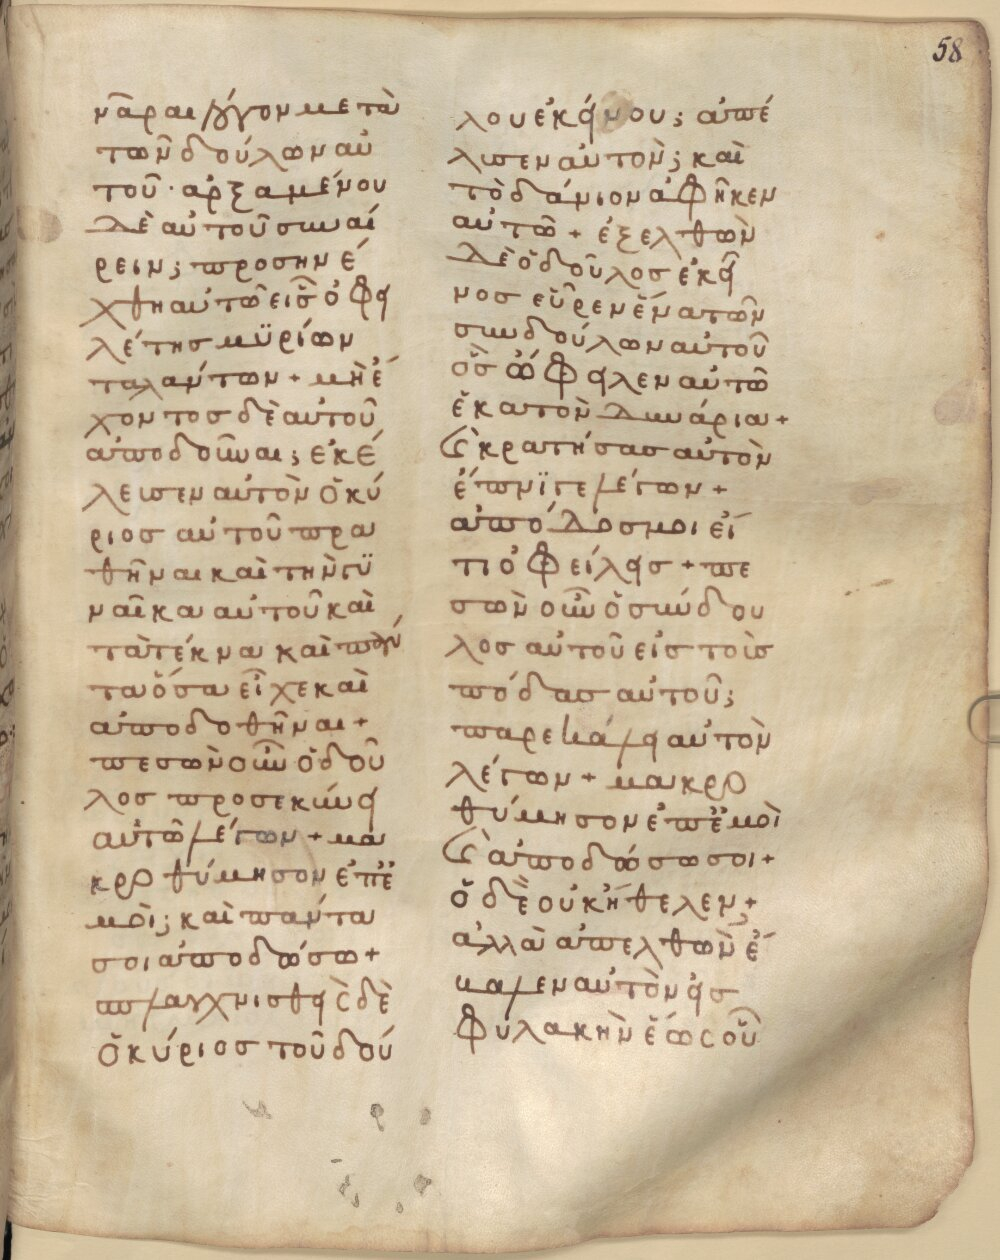 58
νᾶραι λόγον μετὰ
τῶν δούλων αὐ
τοῦ · ἀρξαμένου
δὲ αὐτοῦ συναί
ρειν; προσηνέ
χθη αὐτῶ εἷς ὀφει
λέτης μϋρίων
ταλάντων + μὴ ἔ
χοντος δὲ αὐτοῦ
ἀποδοῦναι; ἐκέ
λευσεν αὐτὸν ὁ κύ
ριος αὐτοῦ πρα
θῆναι καὶ τὴν γϋ
ναῖκα αὐτοῦ καὶ
τὰ τέκνα καὶ πάν
τα ὅσα εἶχε καὶ
ἀποδοθῆναι +
πεσὼν οὖν ὁ δοῦ
λος προσεκύνει
αὐτῶ λέγων + μα
κροθύμησον ἐπ ἐ
μοὶ; καὶ πάντα
σοι ἀποδώσω +
σπλαγχνισθεὶς δὲ
ὁ κύριος τοῦ δού
λου ἐκείνου; ἀπέ
λυσεν αὐτὸν; καὶ
τὸ δάνιον ἀφῆκεν
αὐτῶ + ἐξελθὼν
δὲ ὁ δοῦλος ἐκεῖ
νος εὗρεν ἕνα τῶν
συνδούλων αὐτοῦ
ὃς ὤφειλεν αὐτῶ
ἑκατὸν δινάρια +
καὶ κρατήσας αὐτὸν
ἔπνϊγε λέγων +
ἀπόδος μοι εἴ
τι ὀφείλεις + πε
σὼν οὖν ὁ σύνδου
λος αὐτοῦ εἰς τοὺς
πόδας αὐτοῦ;
παρεκάλει αὐτὸν
λέγων + μακρο
θύμησον ἐπ ἐμοὶ
καὶ ἀποδώσω σοι +
ὁ δὲ οὐκ ἤθελεν +
ἀλλὰ ἀπελθὼν ἔ
βαλεν αὐτὸν εἰς
φυλακὴν ἕως οὗ